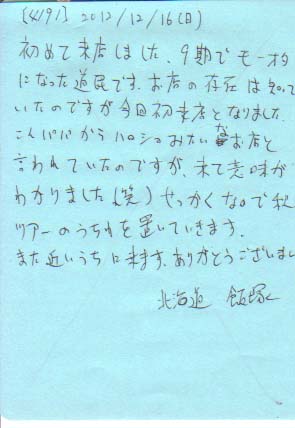 [4191] 2012/12/16(日)
初めて来店しました。9期でモーオタ
になった道民です。お店の存在は知って
いたのですが今回初来店となりました。
こんパパからハロショみたいなお店と
言われていたのですが、来て意味が
わかりました(笑) せっかくなので秋
ツアーのうちわを置いていきます。
また近いうちに来ます。ありがとうございまし
北海道 飯塚